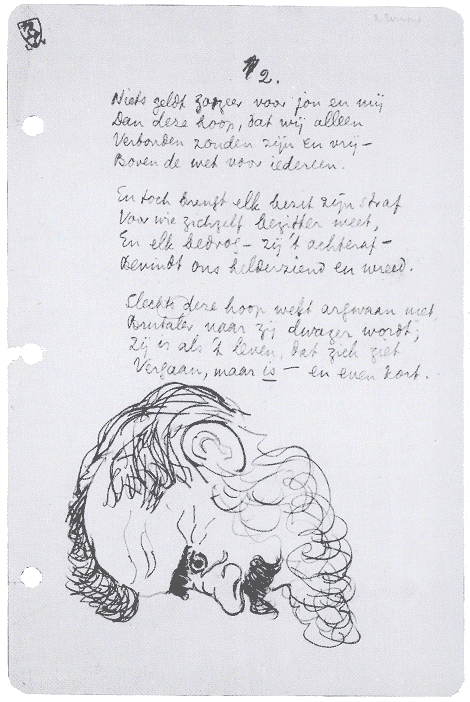 2.
Niets geldt zoozeer voor jou en mij
Dan deze hoop, dat wij alleen
Verbonden zouden zijn en vrij –
Boven de wet voor iedereen.
En toch brengt elk bezit zijn straf
Voor wie zichzelf bezitter weet,
En elk bedrog – zij 't achteraf –
Bevindt ons helderziend en wreed.
Slechts deze hoop wekt argwaan niet,
Brutaler naar zij dwazer wordt;
Zij is als 't leven, dat zich ziet
Vergaan, maar is – en even kort.